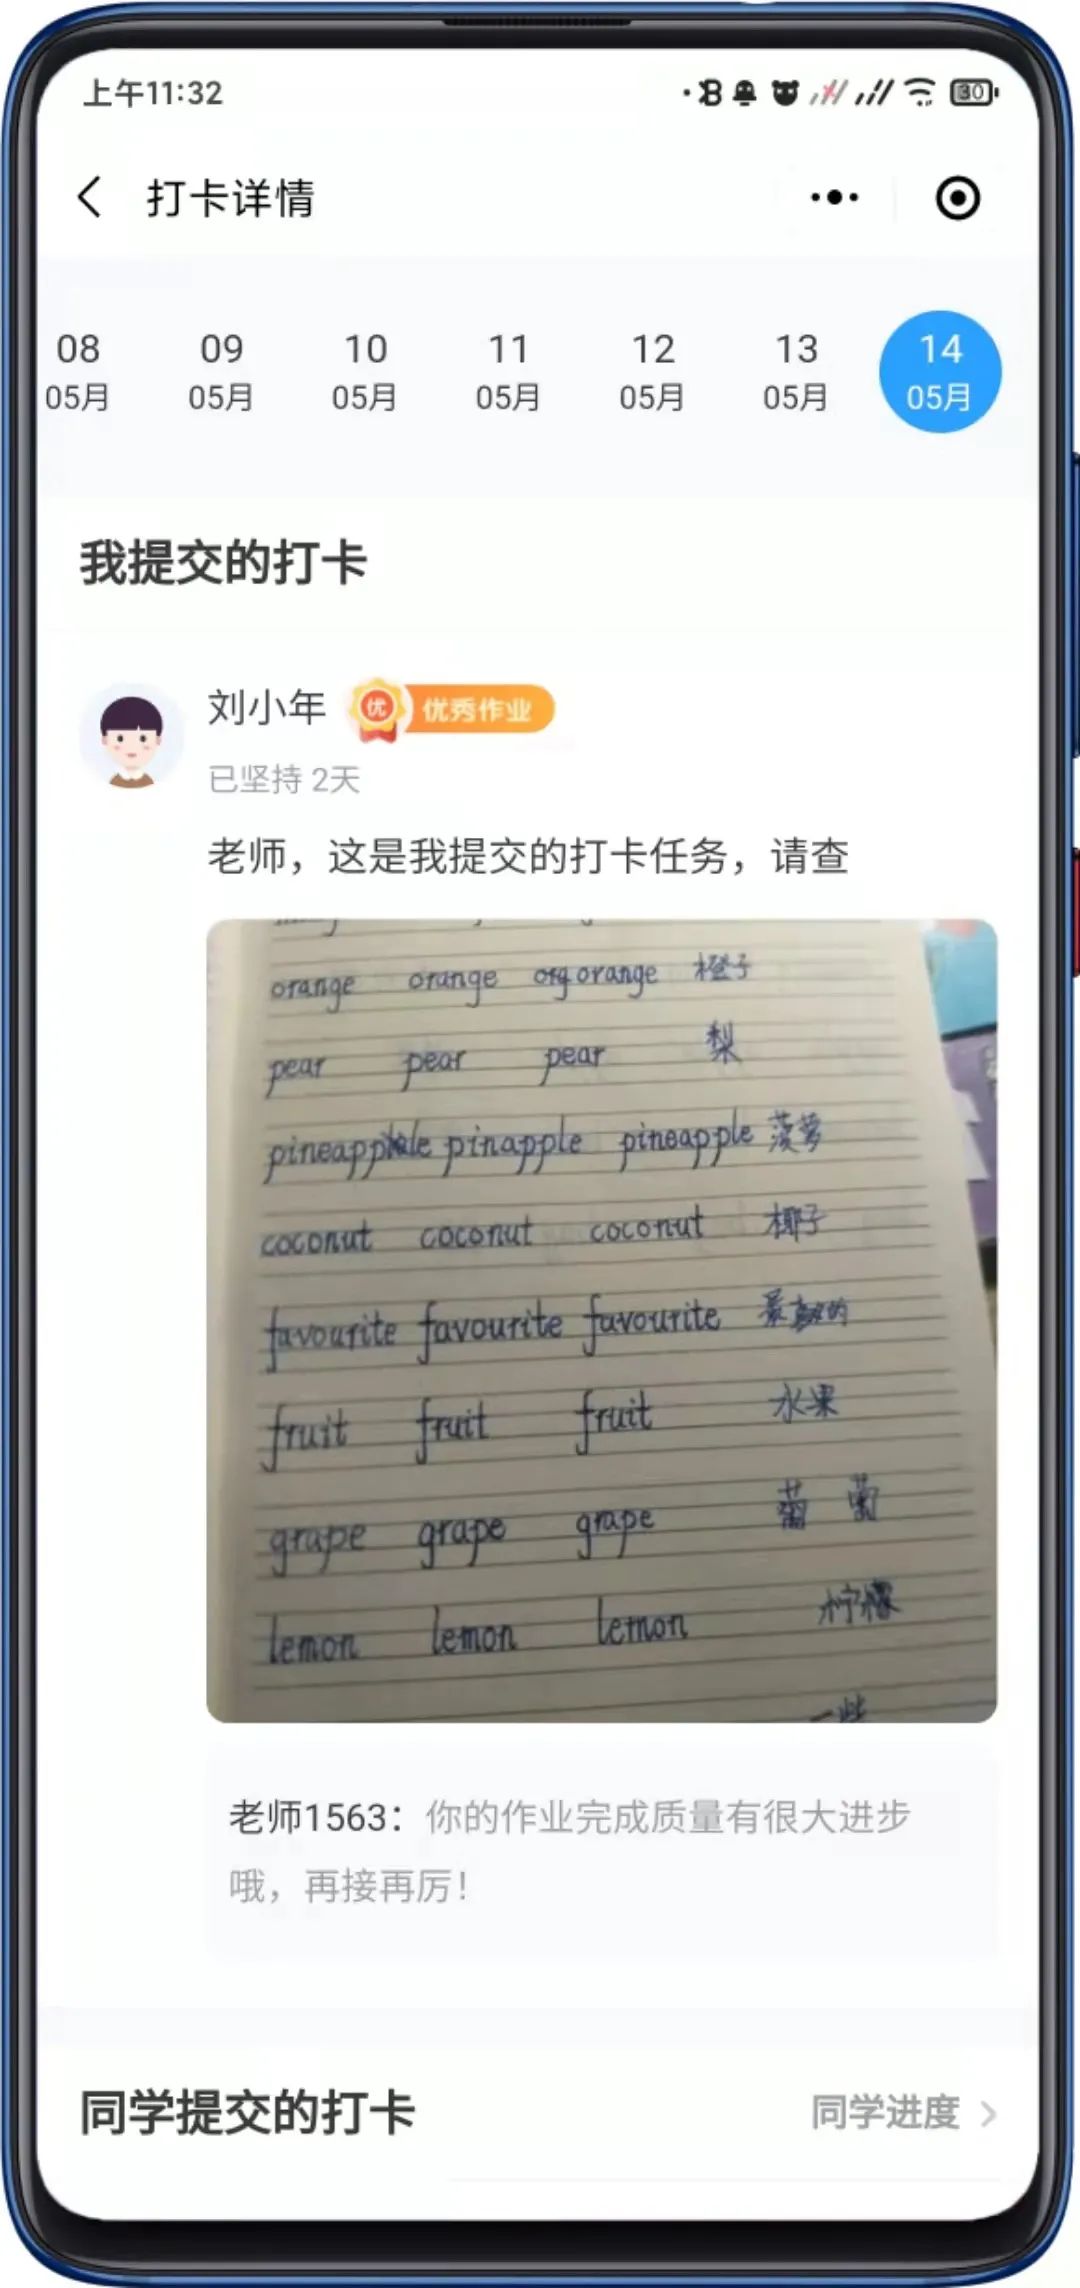 上午11:32
30
打卡详情
08 09 10 11 12 13 14
05月 05月 05月 05月 05月 05月 05月
我提交的打卡
刘小年 优 优秀作业
已坚持 2天
老师，这是我提交的打卡任务，请查
orange orange org orange 橙子
pear pear pear 梨
pinapple pineapple 菠萝
coconut coconut coconut 椰子
favourite favourite favourite 最喜欢的
fruit fruit fruit 水果
grape grape grape 葡萄
lemon lemon lemon 柠檬
一些
老师1563：你的作业完成质量有很大进步
哦，再接再厉！
同学提交的打卡 同学进度